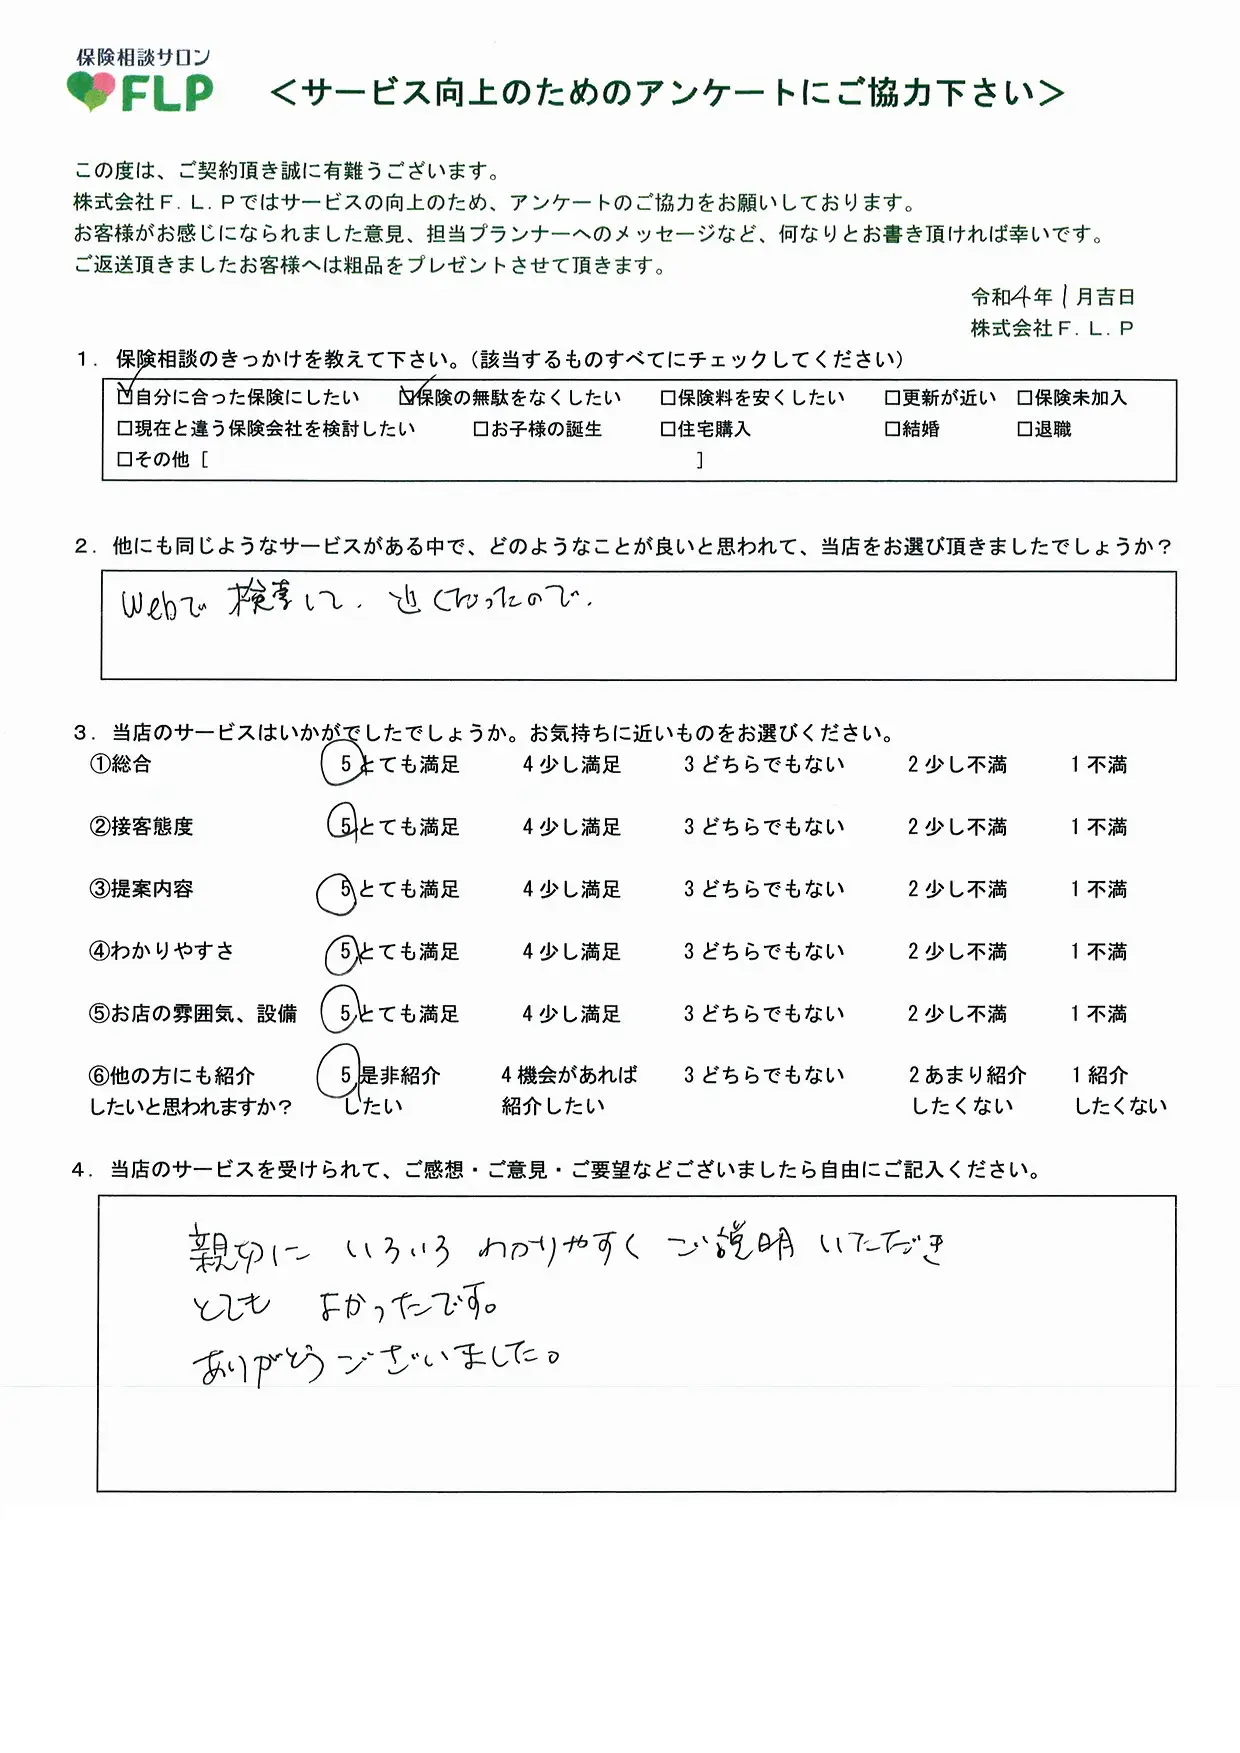 保険相談サロン
FLP
＜サービス向上のためのアンケートにご協力下さい＞
この度は、ご契約頂き誠に有難うございます。
株式会社Ｆ．Ｌ．Ｐではサービスの向上のため、アンケートのご協力をお願いしております。
お客様がお感じになられました意見、担当プランナーへのメッセージなど、何なりとお書き頂ければ幸いです。
ご返送頂きましたお客様へは粗品をプレゼントさせて頂きます。
令和4年1月吉日
株式会社Ｆ．Ｌ．Ｐ
１．保険相談のきっかけを教えて下さい。（該当するものすべてにチェックしてください）
☑自分に合った保険にしたい ☑保険の無駄をなくしたい □保険料を安くしたい □更新が近い □保険未加入
□現在と違う保険会社を検討したい □お子様の誕生 □住宅購入 □結婚 □退職
□その他［ ］
２．他にも同じようなサービスがある中で、どのようなことが良いと思われて、当店をお選び頂きましたでしょうか？
Webで検索して．近くだったので．
３．当店のサービスはいかがでしたでしょうか。お気持ちに近いものをお選びください。
①総合 5とても満足 4少し満足 3どちらでもない 2少し不満 1不満
②接客態度 5とても満足 4少し満足 3どちらでもない 2少し不満 1不満
③提案内容 5とても満足 4少し満足 3どちらでもない 2少し不満 1不満
④わかりやすさ 5とても満足 4少し満足 3どちらでもない 2少し不満 1不満
⑤お店の雰囲気、設備 5とても満足 4少し満足 3どちらでもない 2少し不満 1不満
⑥他の方にも紹介 5是非紹介 4機会があれば 3どちらでもない 2あまり紹介 1紹介
したいと思われますか？ したい 紹介したい したくない したくない
４．当店のサービスを受けられて、ご感想・ご意見・ご要望などございましたら自由にご記入ください。
親切に いろいろ わかりやすく ご説明 いただき
とても よかったです。
ありがとうございました。